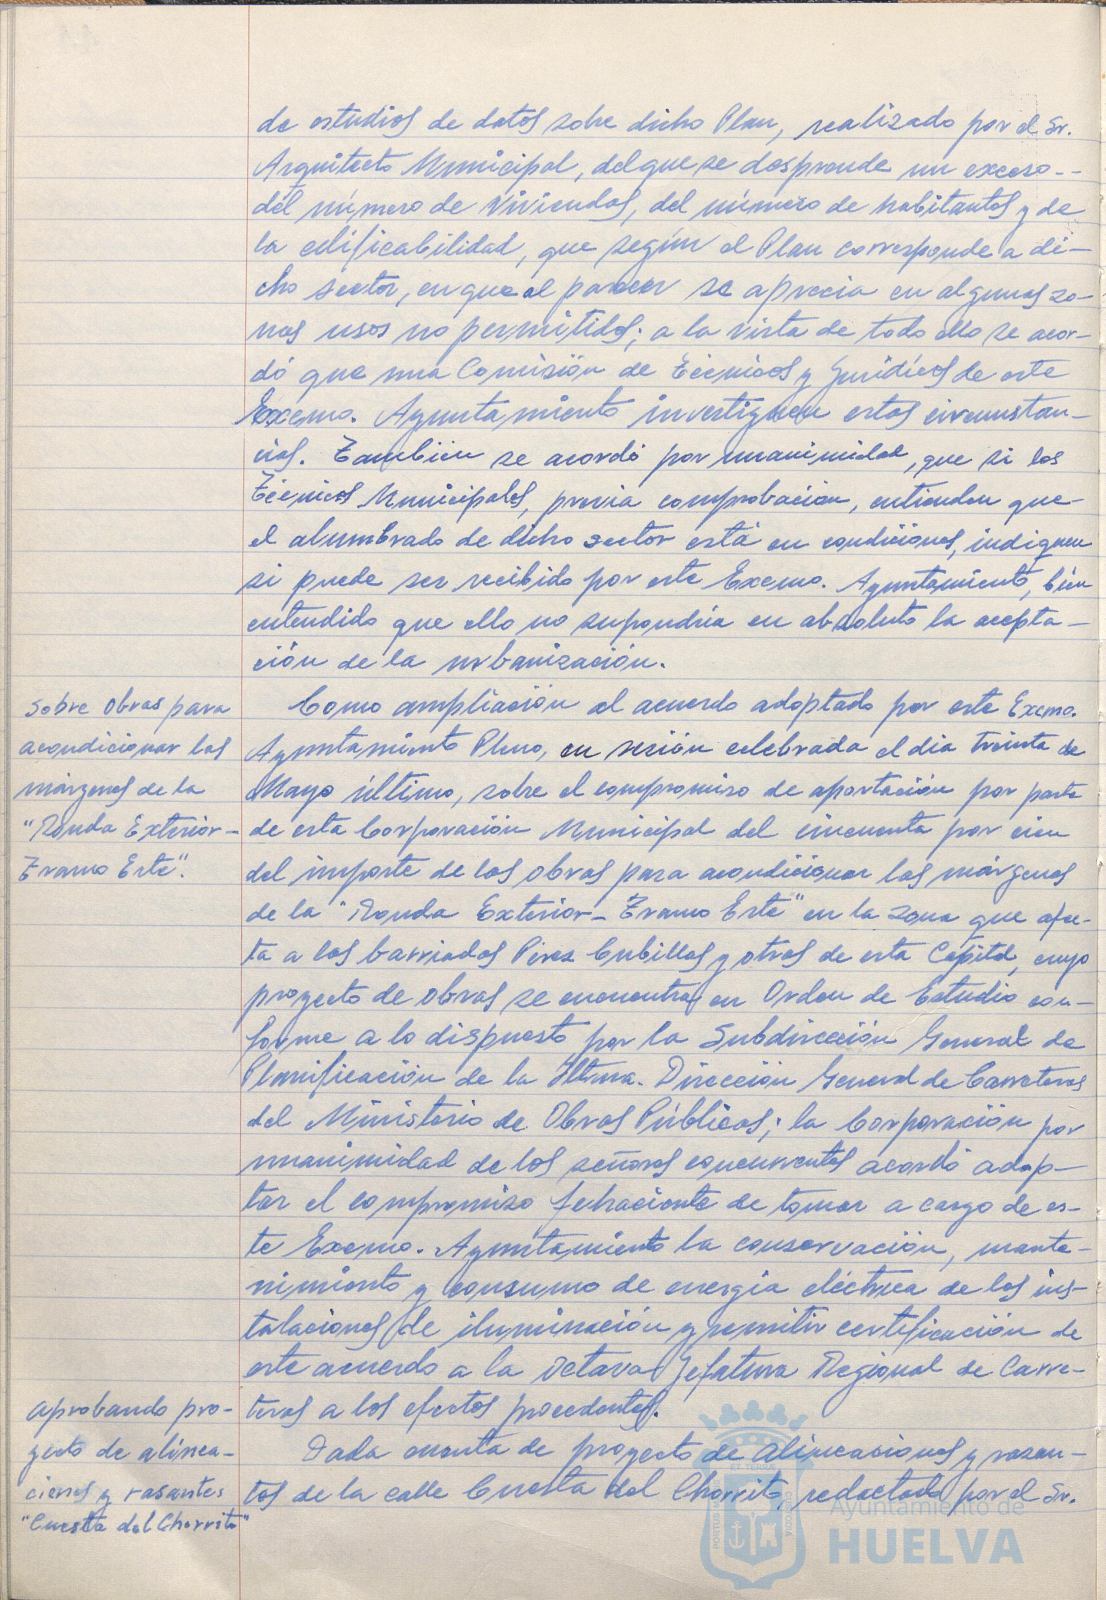 de estudios de datos sobre dicho Plan, realizado por el Sr.
Arquitecto Municipal, del que se desprende un exceso --
del número de viviendas, del número de habitantes y de
la edificabilidad, que según el Plan corresponde a di-
cho sector, en que al parecer se aprecia en algunas zo-
nas usos no permitidos; a la vista de todo ello se acor-
dó que una Comisión de Técnicos y Jurídicos de este
Excmo. Ayuntamiento investiguen estas circunstan-
cias. También se acordó por unanimidad, que si los
Técnicos Municipales, previa comprobación, entienden que
el alumbrado de dicho sector está en condiciones, indiquen
si puede ser recibido por este Excmo. Ayuntamiento, bien
entendido que ello no supondría en absoluto la acepta-
ción de la urbanización.
Sobre Obras para
acondicionar las
márgenes de la
"Ronda Exterior-
Tramo Este".
Como ampliación al acuerdo adoptado por este Excmo.
Ayuntamiento Pleno, en sesión celebrada el día treinta de
Mayo último, sobre el compromiso de aportación por parte
de esta Corporación Municipal del cincuenta por cien
del importe de las obras para acondicionar las márgenes
de la "Ronda Exterior- Tramo Este" en la zona que afec-
ta a las barriadas Pérez Cubillas y otras de esta Capital, cuyo
proyecto de obras se encuentra en Orden de Estudio con-
forme a lo dispuesto por la Subdirección General de
Planificación de la Iltma. Dirección General de Carreteras
del Ministerio de Obras Públicas; la Corporación por
unanimidad de los señores concurrentes acordó adop-
tar el compromiso fehaciente de tomar a cargo de es-
te Excmo. Ayuntamiento la conservación, mante-
nimiento y consumo de energía eléctrica de las ins-
talaciones de iluminación y remitir certificación de
este acuerdo a la Octava Jefatura Regional de Carre-
teras a los efectos procedentes.
Aprobando pro-
yecto de alinea-
ciones y rasantes
"Cuesta del Chorrito"
Dada cuenta de proyecto de alineaciones y rasan-
tes de la calle Cuesta del Chorrito, redactado por el Sr.
Ayuntamiento de
HUELVA